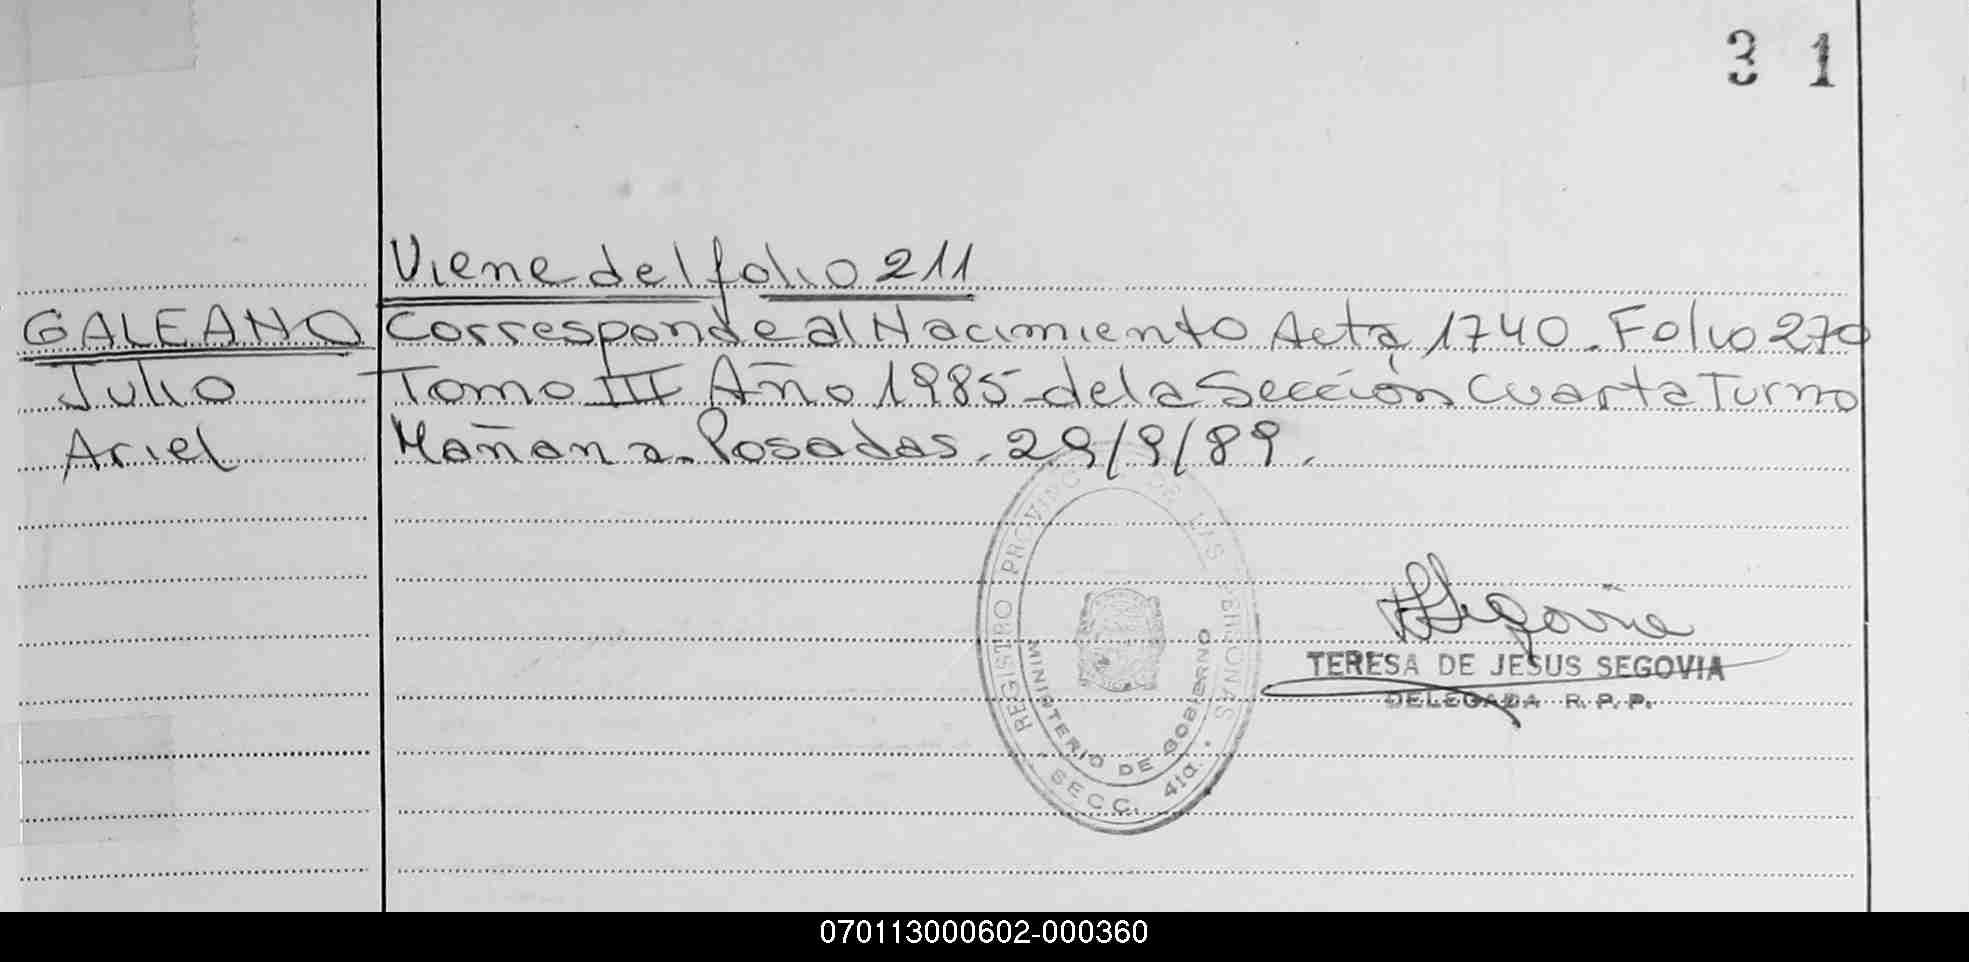 31
Viene del folio 211
GALEANO Corresponde al Nacimiento Acta 1740. Folio 270
Julio Tomo III Año 1985 de la Sección Cuarta Turno
Ariel Mañana. Posadas, 29/9/89.
REGISTRO PROVINC DE LAS PERSONAS
MINISTERIO DE GOBIERNO
SECC. 4ta.
Segovia
TERESA DE JESUS SEGOVIA
DELEGADA R. P. P.
070113000602-000360